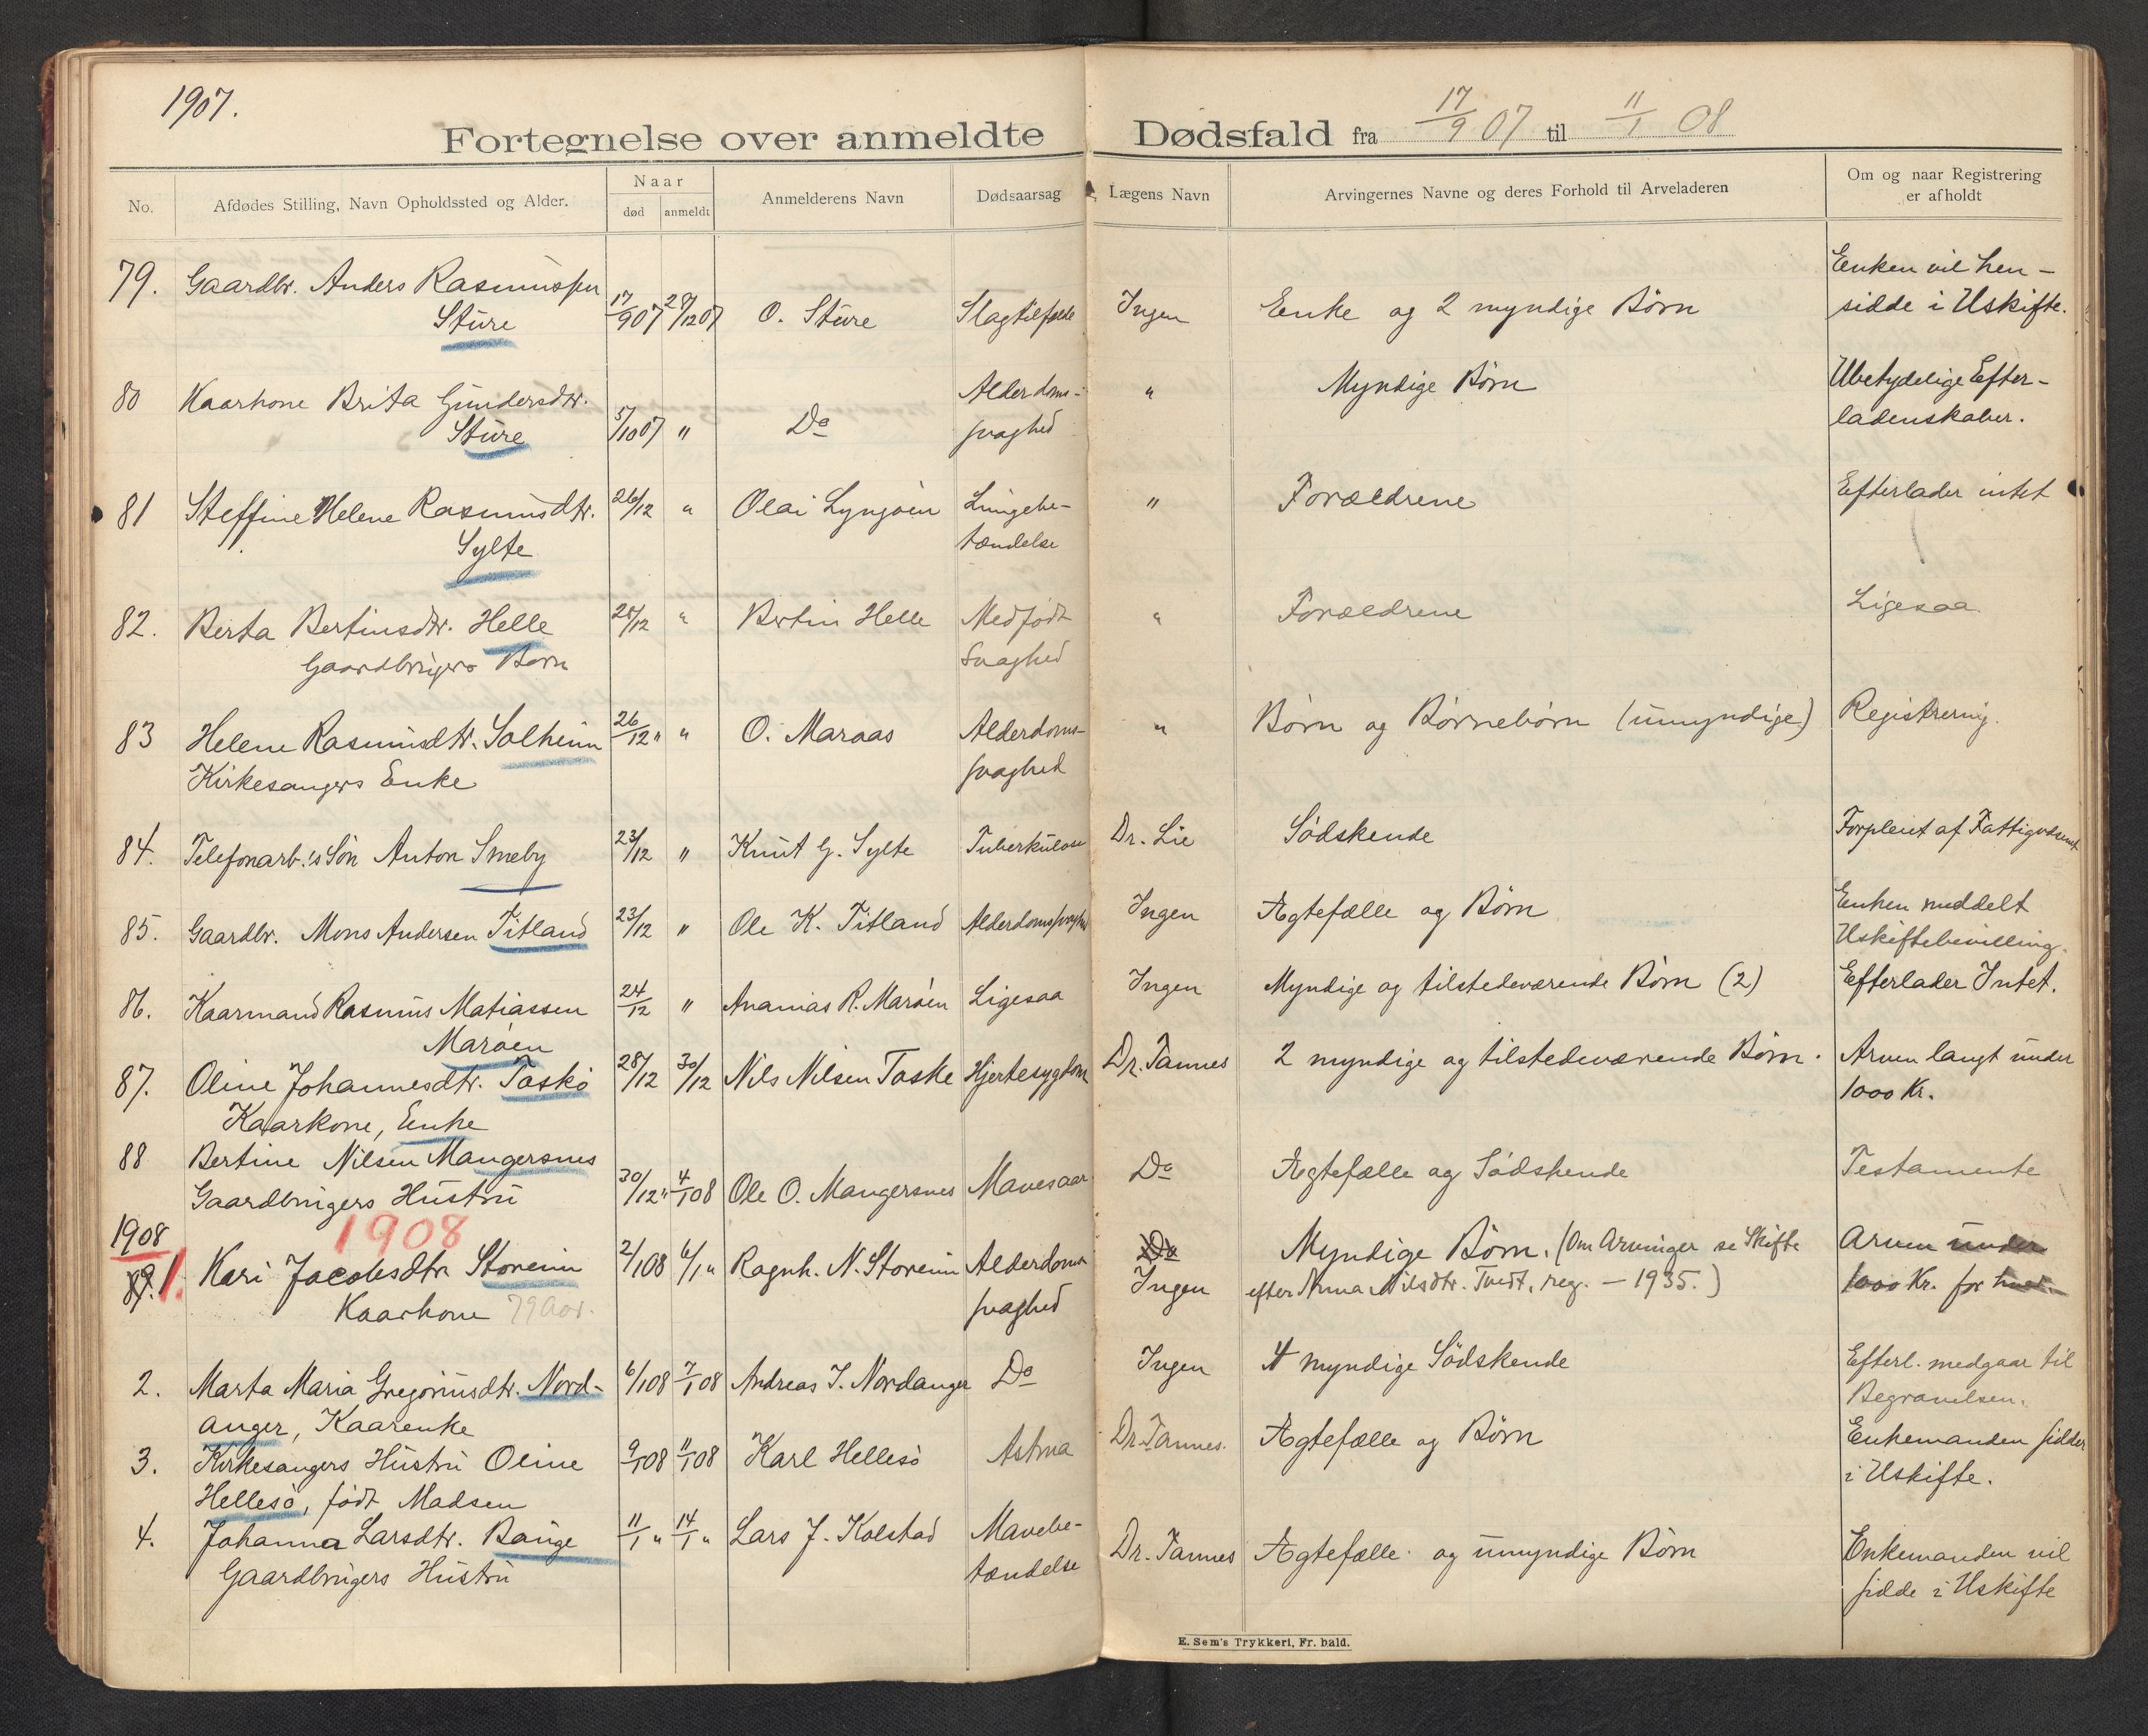 1907.
Fortegnelse over anmeldte Dødsfald fra 17/9 07 til 11/1 08
No.
Afdødes Stilling, Navn Opholdssted og Alder.
Naar
død
anmeldt
Anmelderens Navn
Dødsaarsag
Lægens Navn
Arvingernes Navne og deres Forhold til Arveladeren
Om og naar Registrering
er afholdt
79. Gaardbr. Anders Rasmussen
Sture
17/9 07 28/12 07 O. Sture Slagtilfælde Ingen Enke og 2 myndige Børn
Enken vil hen-
sidde i Uskifte.
80 Kaarkone Brita Gundersdtr.
Sture
5/10 07 " Do
Alderdoms-
svaghed
" Myndige Børn
Ubetydelige Efter-
ladenskaber.
81 Steffine Helene Rasmusdtr.
Sylte
26/12 " Olai Lyngøen
Lungebe-
tændelse
" Forældrene Efterlader intet
82. Berta Bertinsdtr. Helle
Gaardbrugers Barn
25/12 " Bertin Helle
Medfødt
Svaghed
" Forældrene Ligesaa
83 Helene Rasmusdtr. Solheim
Kirkesangers Enke
26/12 " " O. Maraas
Alderdoms-
svaghed
" Børn og Børnebørn (umyndige) Registrering.
84. Telefonarb.'s Søn Anton Smeby 23/12 " Knut G. Sylte Tuberkulose Dr. Lie Sødskende Forpleiet af Fattigvæsenet
85. Gaardbr. Mons Andersen Titland 23/12 " Ole K. Titland Alderdomssvaghed Ingen Ægtefælle og Børn
Enken meddelt
Uskiftebevilling.
86. Kaarmand Rasmus Matiassen
Marøen
24/12 " Ananias R. Marøen Ligesaa Ingen Myndige og tilstedeværende Børn (2) Efterlader Intet.
87. Oline Johannesdtr. Toskø
Kaarkone, Enke
28/12 30/12 Nils Nilsen Toske Hjertesygdom Dr. Tannes 2 myndige og tilstedeværende Børn.
Arven langt under
1000 Kr.
88 Bertine Nilsen Mangersnes
Gaardbrugers Hustru
30/12 " 4/1 08 Ole O. Mangersnes Mavesaar Do Ægtefælle og Sødskende Testamente
1908
1908
89. 1. Kari Jacobsdtr Storeim
Kaarkone 79 Aar.
2/1 08 6/1 " Ragnh. N. Storeim
Alderdoms
svaghed
Do
Ingen
Myndige Børn. (Om Arvinger se Skifte
efter Anna Nilsdtr. Tvedt, reg. – 1935.)
Arven under
1000 Kr. for hver.
2. Marta Maria Gregoriusdtr. Nord-
anger, Kaarenke
6/1 08 7/1 08 Andreas J. Nordanger Do Ingen 4 myndige Sødskende
Efterl. medgaar til
Begravelsen.
3. Kirkesangers Hustru Oline
Hellesø, født Madsen
9/1 08 11/1 08 Karl Hellesø Astma Dr. Tannes. Ægtefælle og Børn
Enkemanden sidder
i Uskifte.
4. Johanna Larsdtr. Bauge
Gaardbrugers Hustru
11/1 " 14/1 " Lars J. Kolstad
Mavebe-
tændelse
Dr. Tannes Ægtefælle og umyndige Børn
Enkemanden vil
sidde i Uskifte
E. Sem's Trykkeri, Fr. hald.